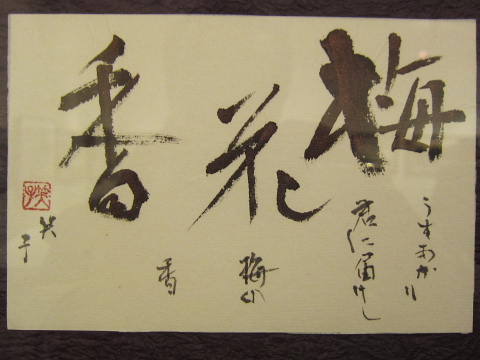 梅花香
うすあかり
君仁届けし
梅の
香